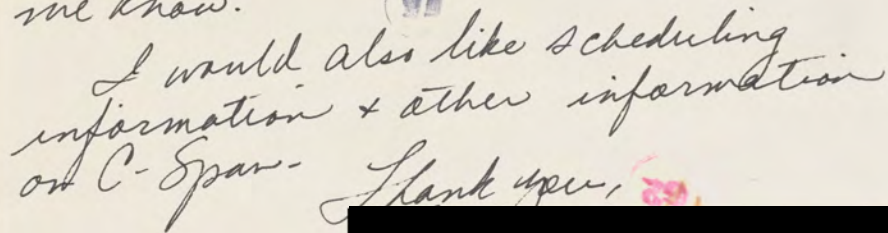 me know.
I would also like scheduling
information + other information
on C-Span-
Thank you,